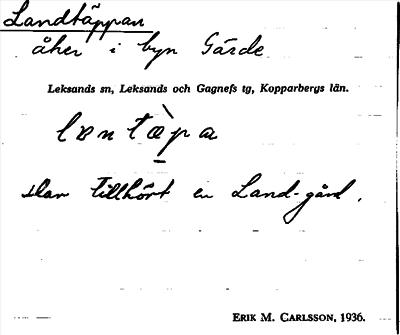 Landtäppan
åker i byn Gärde
Leksands sn, Leksands och Gagnefs tg, Kopparbergs län.
Har tillhört en Land-gård.
ERIK M. CARLSSON, 1936.